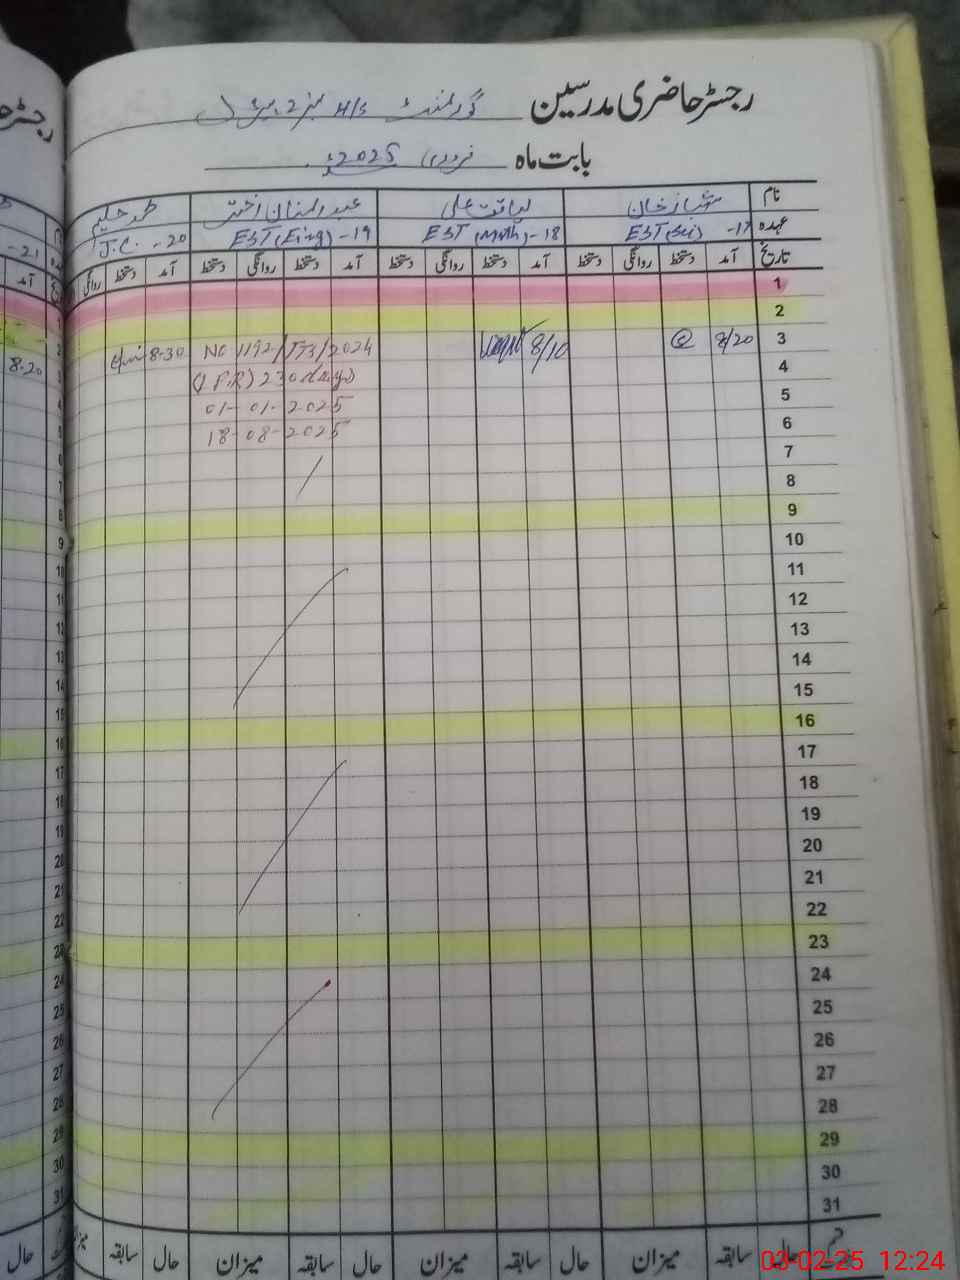 رجسٹر حاضری مدرسین گورنمنٹ H/S نمبر 2
بابت ماہ فروری 2025ء
نام شہباز خان لیاقت علی عبدالمنان اختر
عہدہ EST (Sci) -17 EST (Math) -18 EST (Eng) -19 J.C. -20
تاریخ آمد دستخط روانگی دستخط آمد دستخط روانگی دستخط آمد دستخط روانگی دستخط آمد دستخط روانگی
1
2
3 8/20 8/10 No 1192/ /2024 8-30
4 230 days
5 01-01-2025
6 18-08-2025
7
8
9
10
11
12
13
14
15
16
17
18
19
20
21
22
23
24
25
26
27
28
29
30
31
حال سابقہ میزان حال سابقہ میزان حال سابقہ میزان حال سابقہ
-21
آمد
8-20
حال
03-02-25 12:24